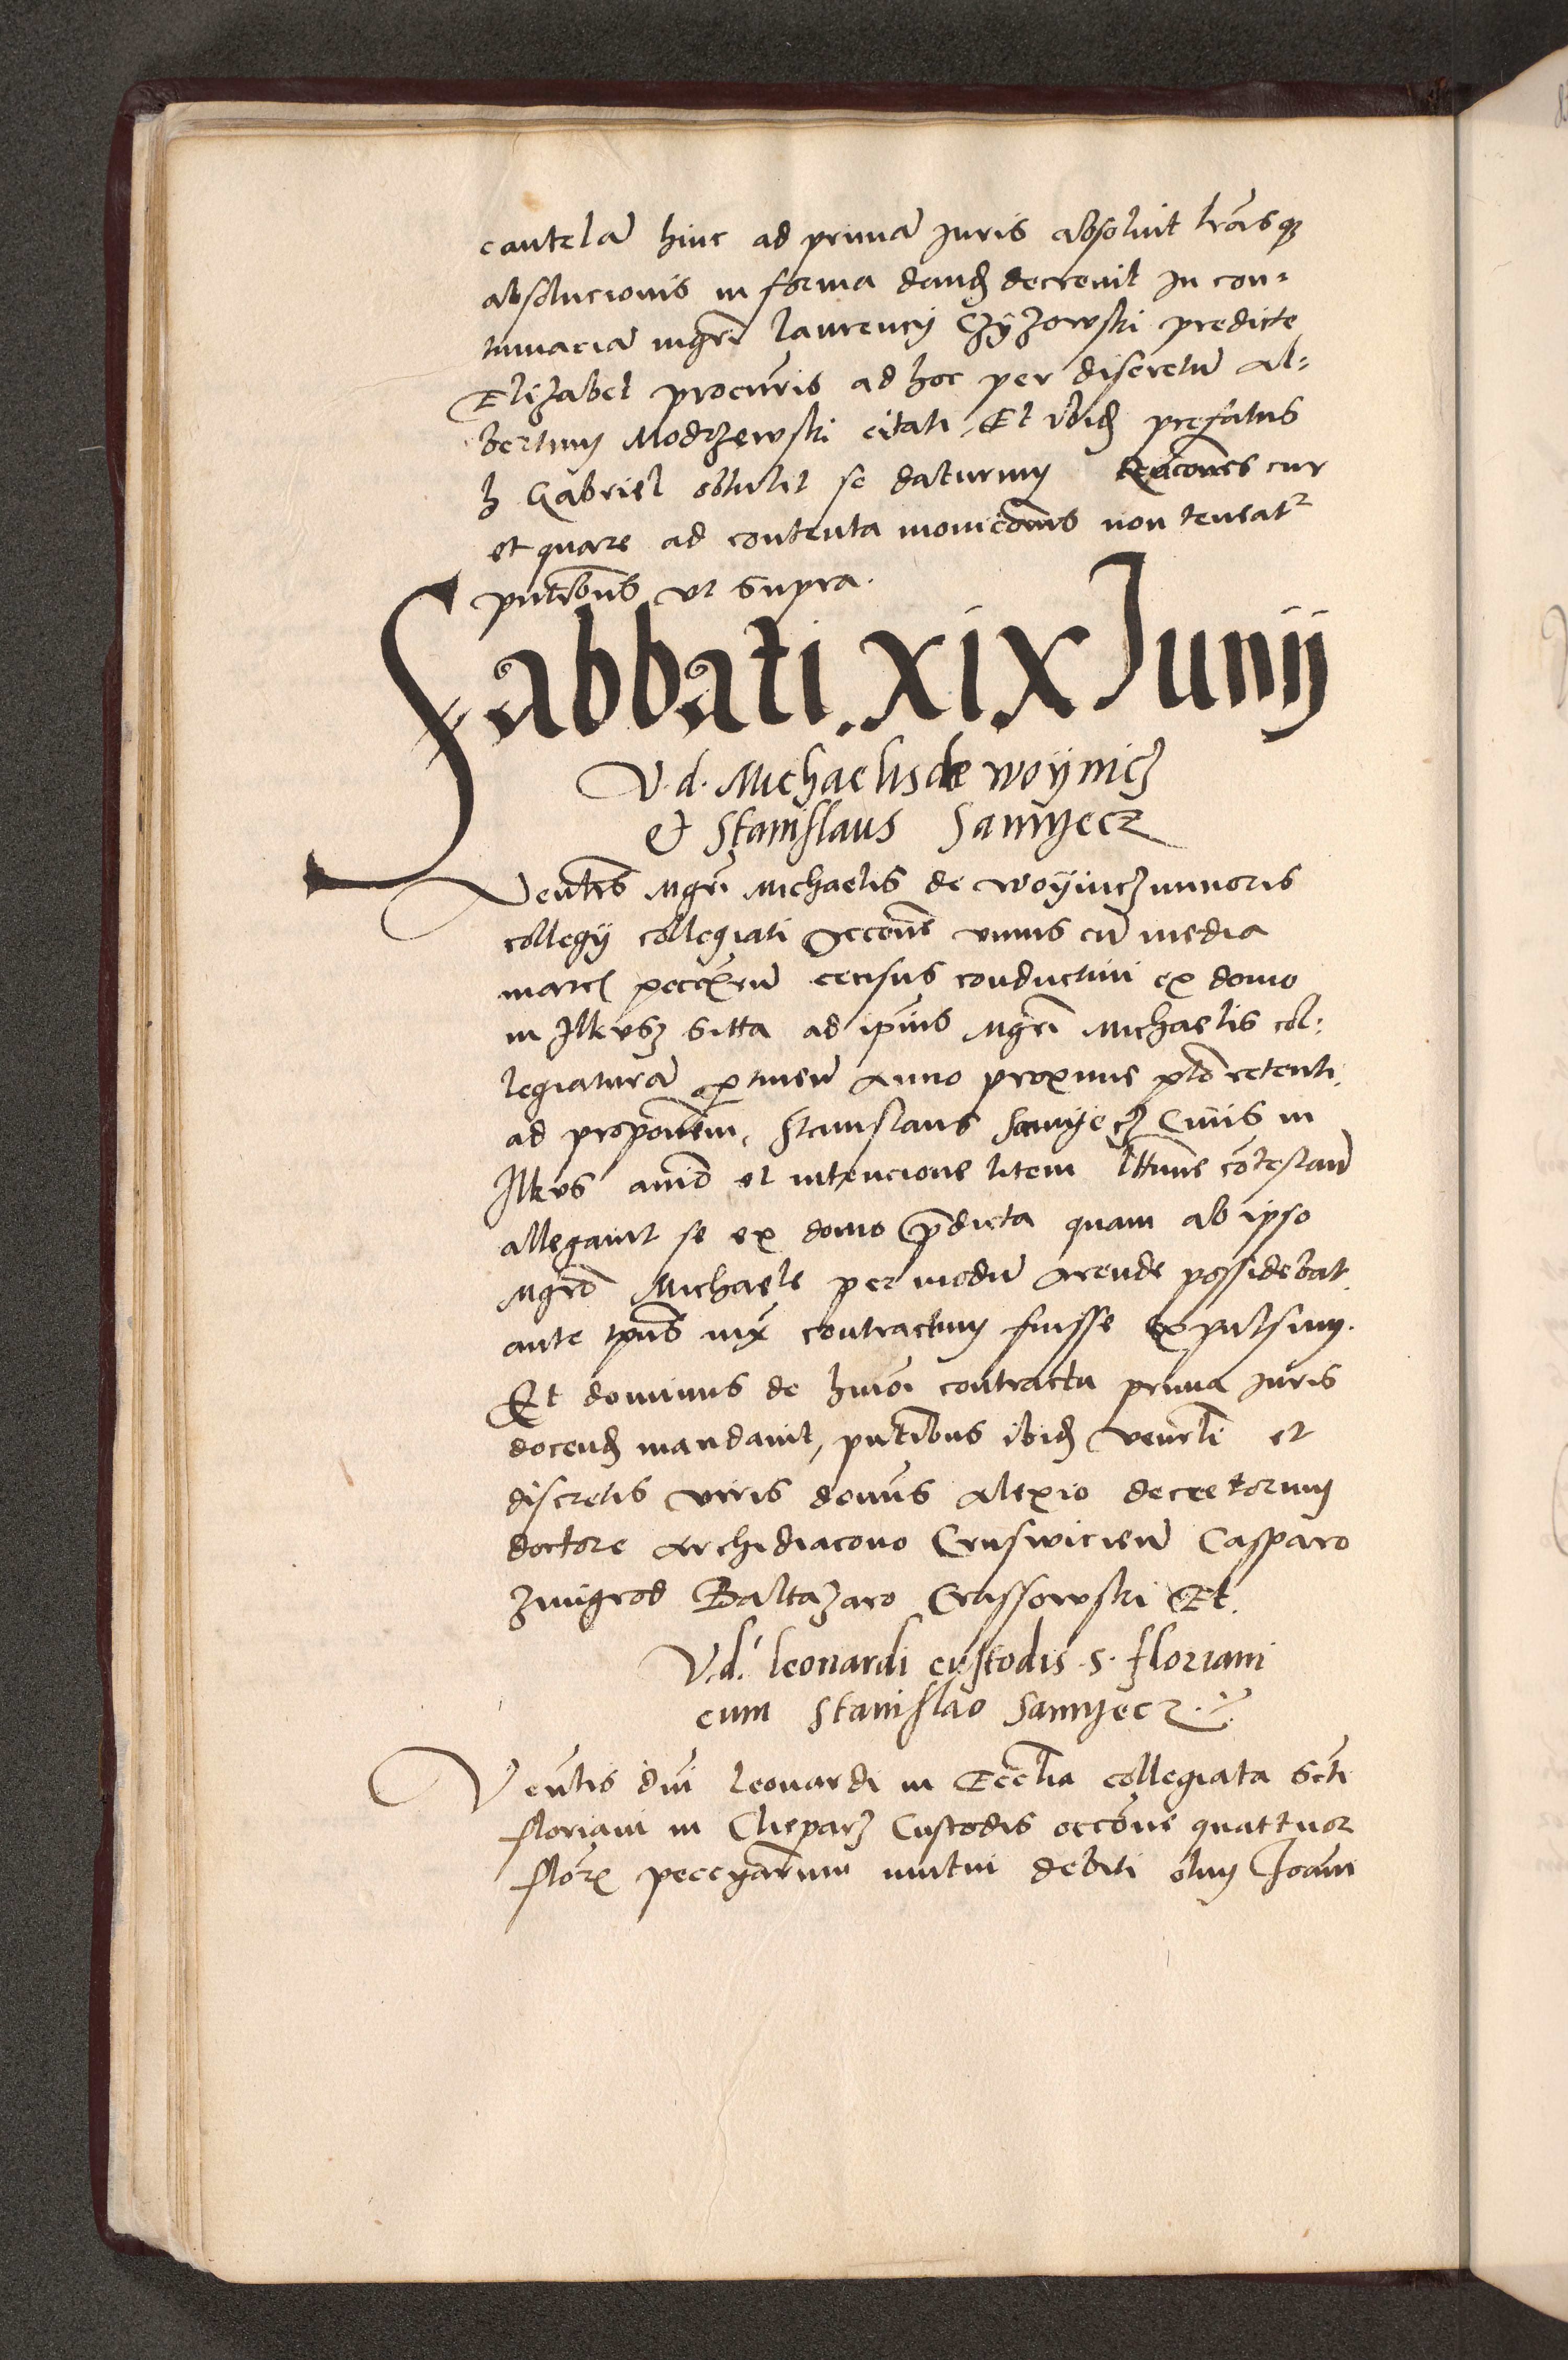 cautelā hinc ad primā Juris absoluit lrāsq3
absolucionis in forma dand decreuit In con=
tumaciā mgrī laurencij Czyzowski predicte
Elizabet procuris ad hoc per discretū Al=
bertum Modrzewski citati, Et ibid prefatus
h Gabriel obtulit se daturum Racones cur
et quare ad contenta moniconis non teneat
pntibus vt supra.
Sabbati. xix Junij
V. d. Michaelis de woynicz
et Stanislaus Samyecz
Ventis Mgrī Michaelis de Woynicz minoris
collegij collegiati occone vnius cū media
marce peccerū census conductiui ex domo
in Ilkusz sitta ad ipius Mgrī Michaelis col=
legiaturā ptinen Anno proxime pto retenti.
ad proponem, Stanislaus Samyecz Ciuis in
Ilkus animo et intencione litem lttime cōtestan
allegauit se ex domo pdicta quam ab ipso
Mgro Michaele per modū Arende possidebat
ante tpus iux contractum fuisse expulsum.
Et dominus de hmōi contractu prima Juris
docend mandauit, pntibus ibid venrli et
discretis viris domis Alexio decretorum
doctore Archidiacono Crusvicien Casparo
Zmigrod Baltazaro Crassowski Et.
V. d. leonardi custodis s. floriani
cum Stanislao Samyecz
Ventis dni leonardi in Ecclia collegiata Scti
floriani in Cleparz Custodis occone quattuor
flor peccyarum mutui debiti olim Joāni